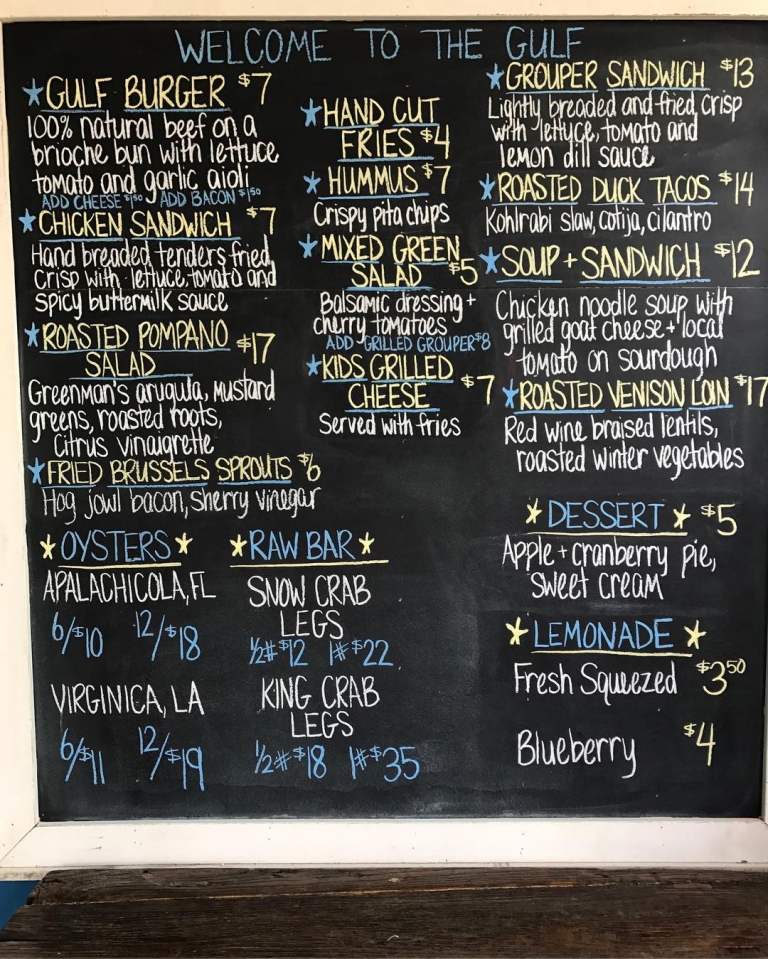 WELCOME TO THE GULF
GULF BURGER $7
100% natural beef on a
brioche bun with lettuce
tomato and garlic aioli
ADD CHEESE $1.50 ADD BACON $1.50
CHICKEN SANDWICH $7
Hand breaded tenders fried,
crisp with lettuce, tomato and
spicy buttermilk sauce
ROASTED POMPANO
SALAD $17
Greenman's arugula, mustard
greens, roasted roots,
Citrus vinaigrette
FRIED BRUSSELS SPROUTS $6
Hog jowl bacon, sherry vinegar
HAND CUT
FRIES $4
HUMMUS $7
Crispy pita chips
MIXED GREEN
SALAD $5
Balsamic dressing +
cherry tomatoes
ADD GRILLED GROUPER $8
KIDS GRILLED
CHEESE $7
Served with fries
GROUPER SANDWICH $13
Lightly breaded and fried crisp
with lettuce, tomato and
lemon dill sauce
ROASTED DUCK TACOS $14
Kohlrabi slaw, cotija, cilantro
SOUP + SANDWICH $12
Chicken noodle soup with
grilled goat cheese + local
tomato on sourdough
ROASTED VENISON LOIN $17
Red wine braised lentils,
roasted winter vegetables
OYSTERS
APALACHICOLA, FL
6/$10 12/$18
VIRGINICA, LA
6/$11 12/$19
RAW BAR
SNOW CRAB
LEGS
1/2# $12 1# $22
KING CRAB
LEGS
1/2# $18 1# $35
DESSERT $5
Apple + cranberry pie,
sweet cream
LEMONADE
Fresh Squeezed $3.50
Blueberry $4